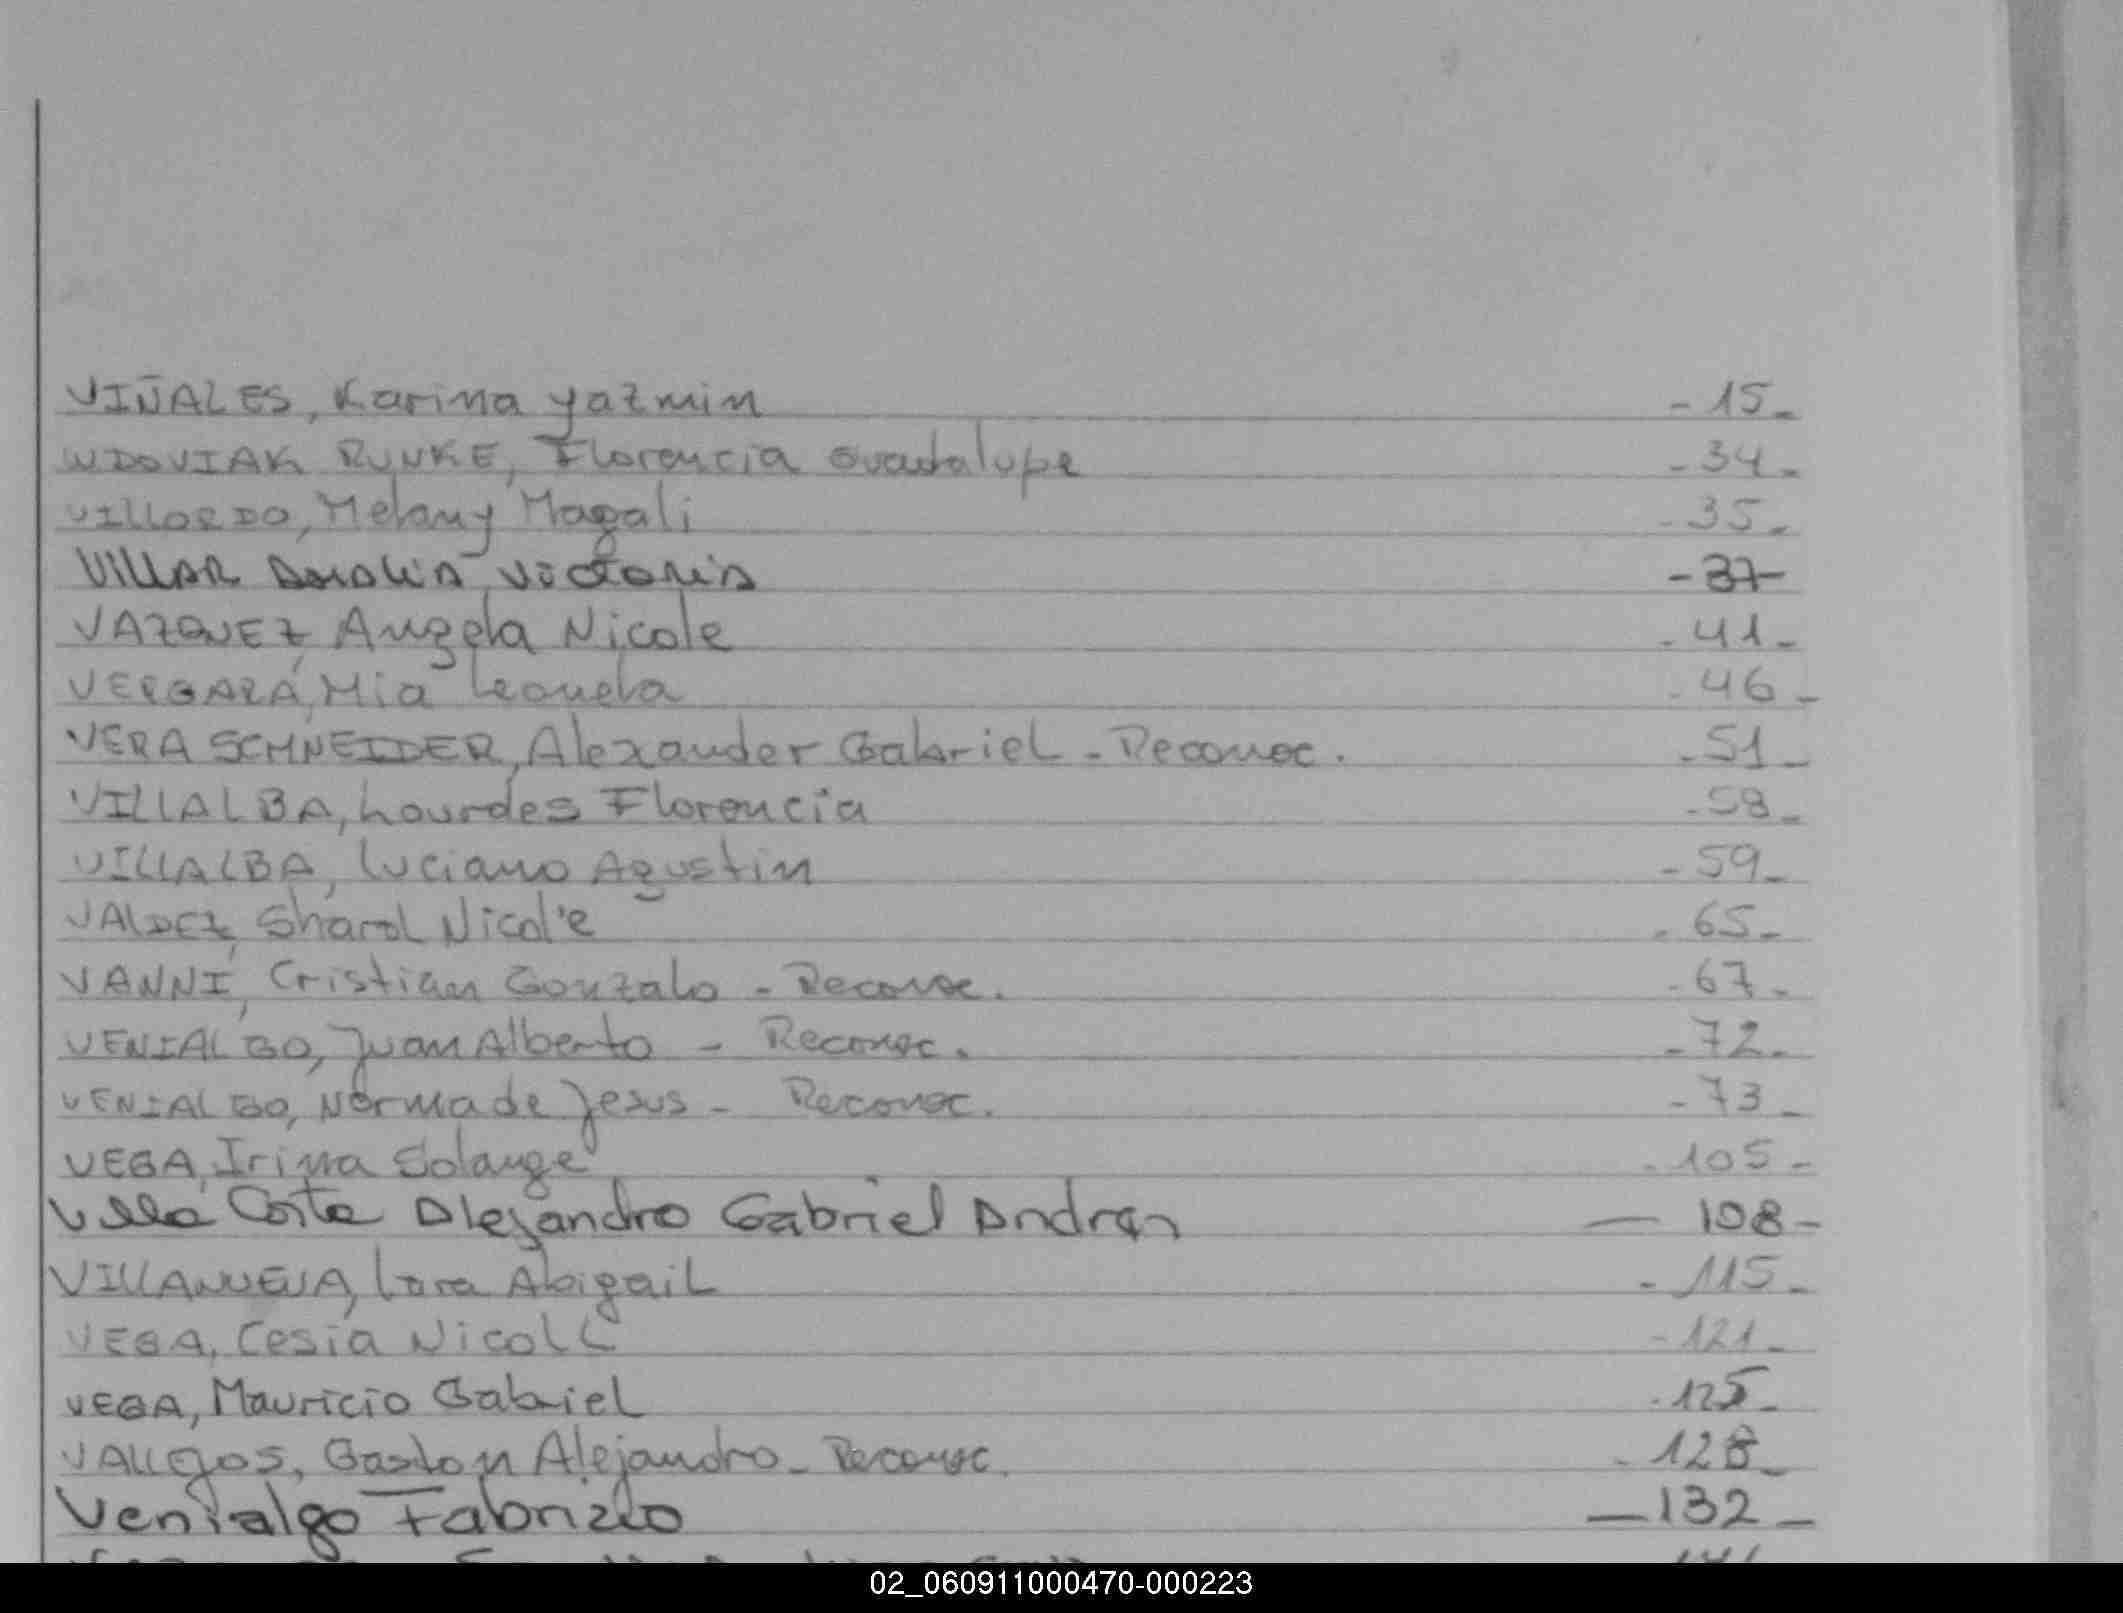 VIÑALES, Karina Yazmin -15-
WDOVIAK RUNKE, Florencia Guadalupe -34-
VILLORDO, Melany Magali -35-
VILLAR Victoria -37-
VAZQUEZ, Angela Nicole -41-
VERGARA, Mia Leonela -46-
VERA SCHNEIDER, Alexander Gabriel - Reconoc. -51-
VILLALBA, Lourdes Florencia -58-
VILLALBA, Luciano Agustin -59-
VALDEZ, Sharol Nicole -65-
VANNI, Cristian Gonzalo - Reconoc. -67-
VENIALGO, Juan Alberto - Reconoc. -72-
VENIALGO, Norma de Jesus - Reconoc. -73-
VEGA, Irina Solange -105-
Costa Alejandro Gabriel — 108-
VILLANUEVA, Lara Abigail -115-
VEGA, Cesia Nicoll -121-
VEGA, Mauricio Gabriel -125-
VALLEJOS, Gaston Alejandro - Reconoc. -128-
Venialgo Fabrizio — 132-
02_060911000470-000223